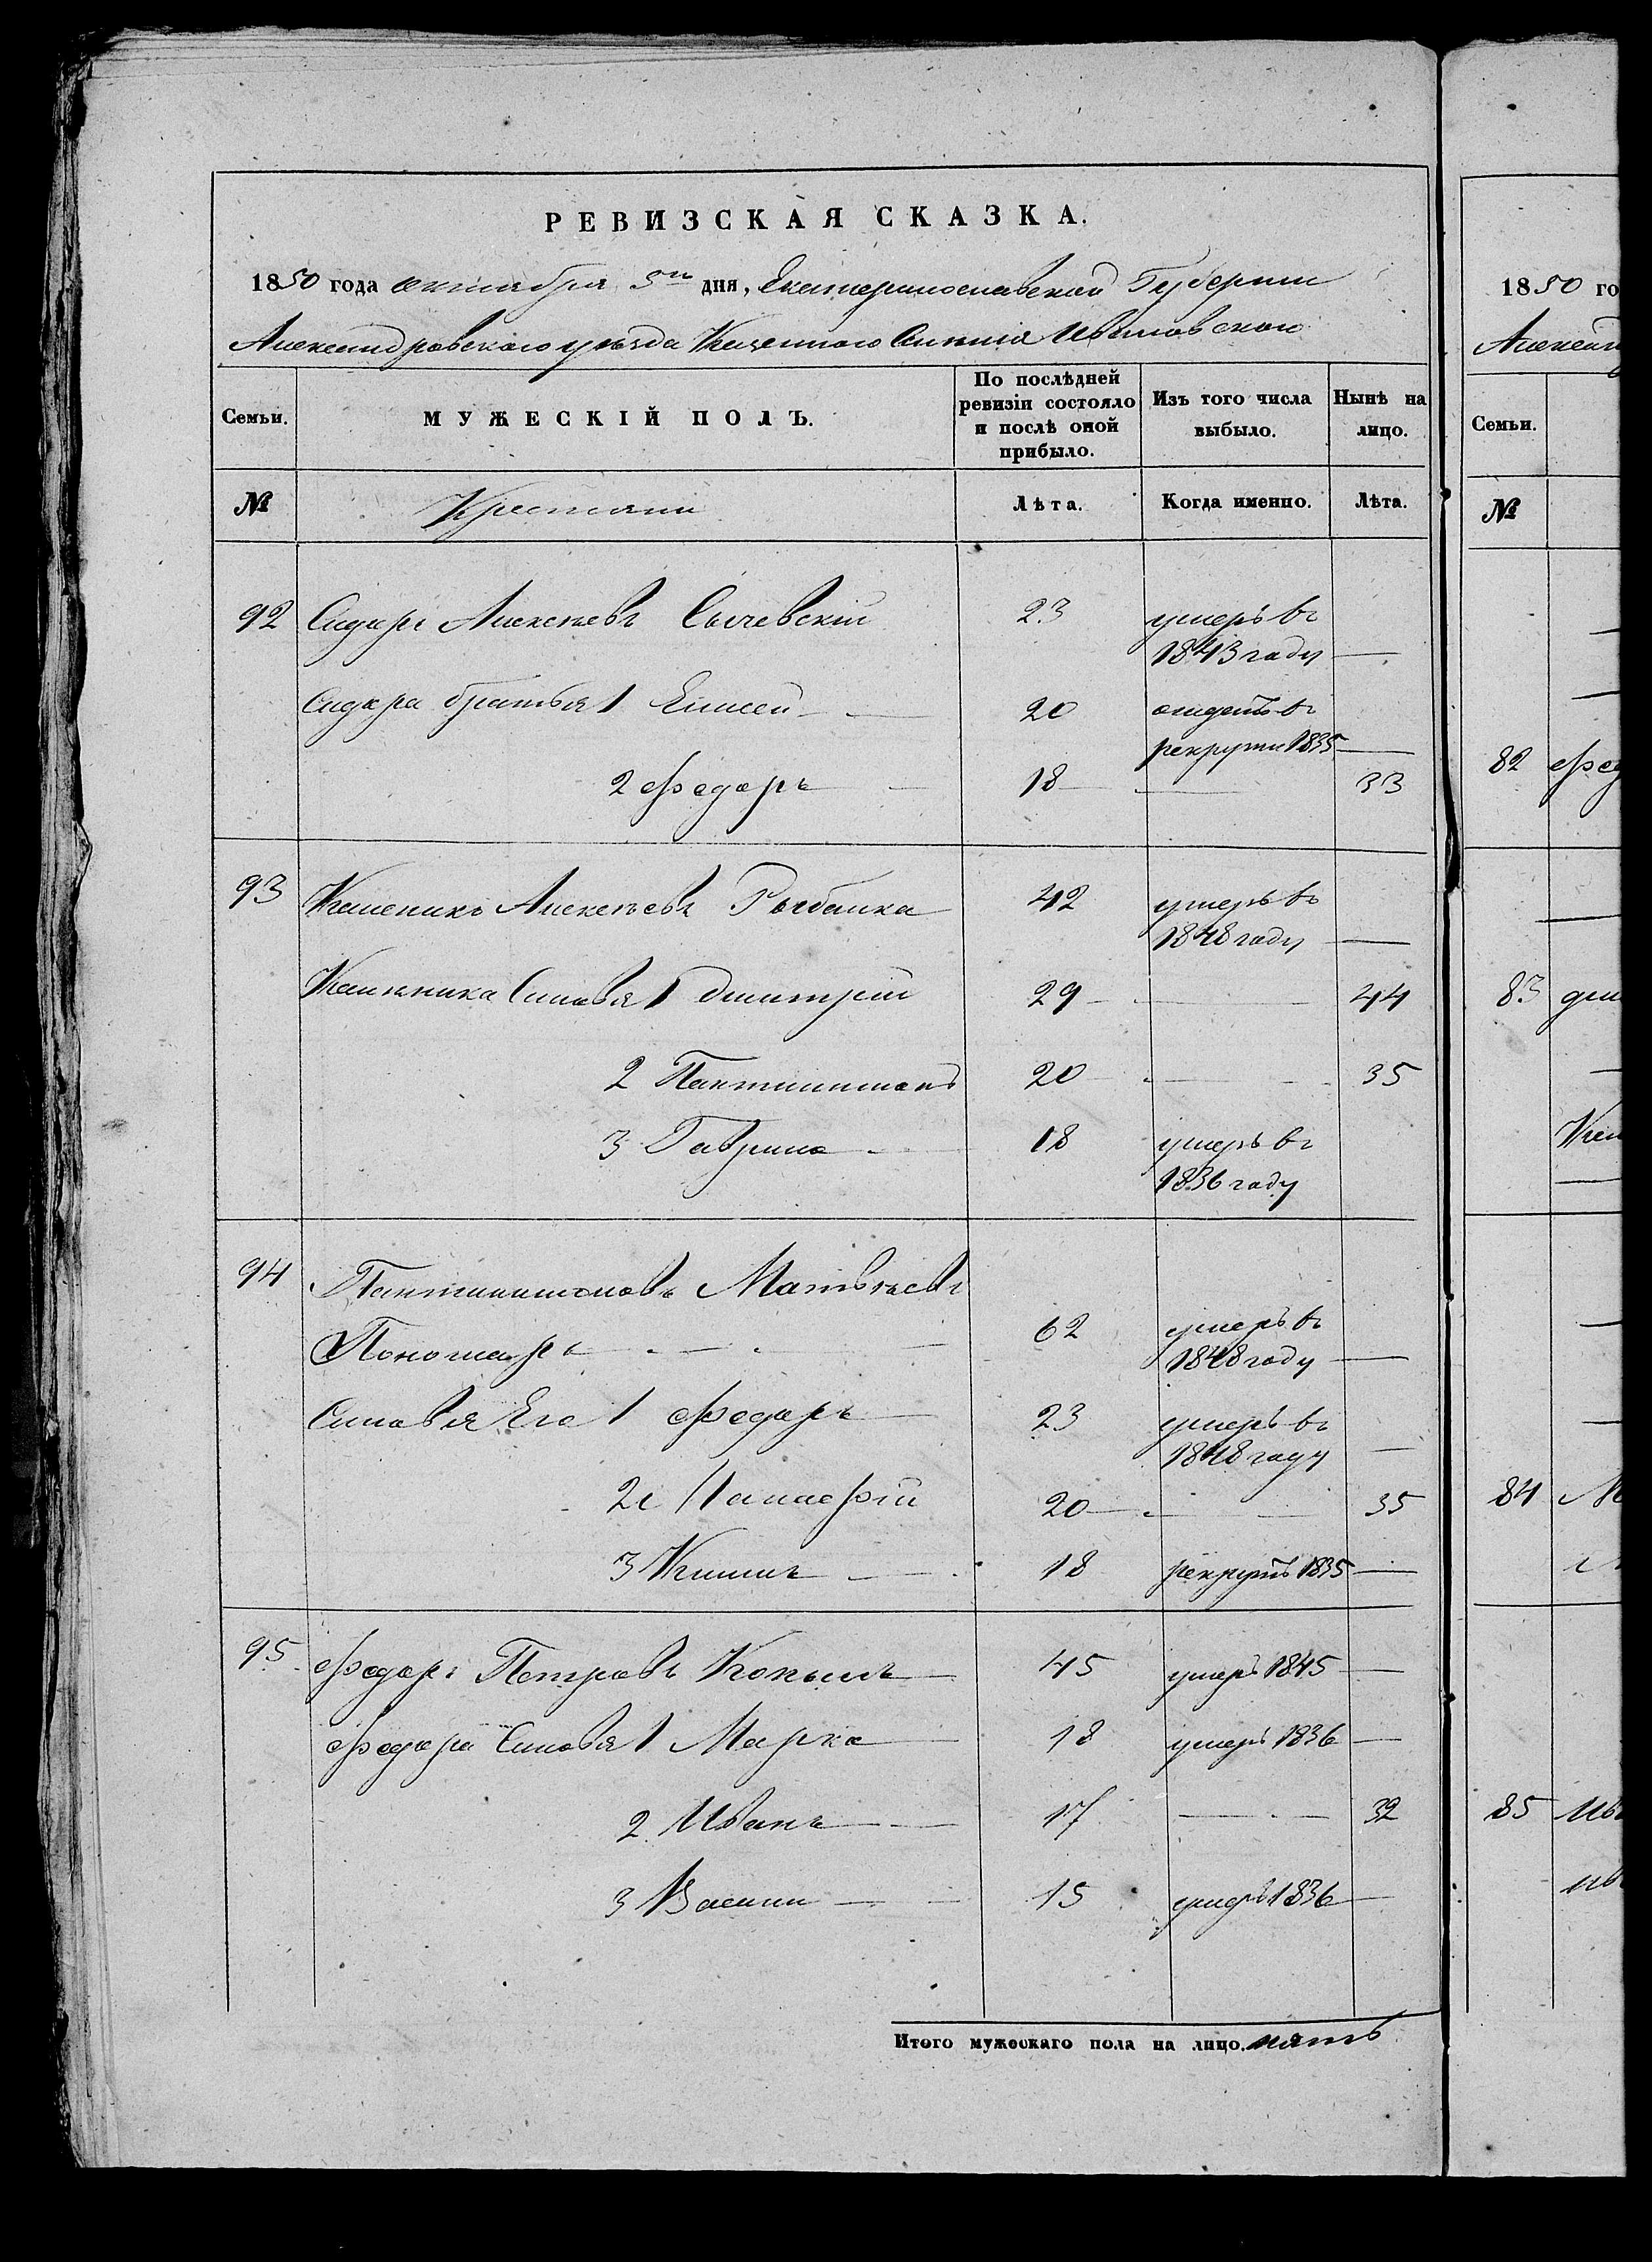 РЕВИЗСКАЯ СКАЗКА.
1850 года октября 5го дня, Екатеринославской Губернии
Александровского уезда Казенного Селения
Семьи. МУЖЕСКІЙ ПОЛЪ. По послѣдней ревизіи состояло и послѣ оной прибыло. Изъ того числа выбыло. Нынѣ на лицо.
№ Крестяни Лѣта. Когда именно. Лѣта.
92 Сидоръ Алексѣевъ Сычевскій 23 умеръ въ
1843 году —
Сидора братья 1 Елисей 20 отданъ въ
рекруты 1835 —
2 Федоръ 18 — 33
93 Алексѣевъ Рыбалка 42 умеръ въ
1848 году —
Синовя 1 Дмитрій 29 — 44
2 Пантилимонъ 20 — 35
3 Гаврило 18 умеръ въ
1836 году
94 Пантилимоновъ Матвѣевъ
Пономарь 62 умеръ въ
1848 году —
Синовя Его 1 Федоръ 23 умеръ въ
1848 году —
2й 20 — 35
3 Климъ 18 рекрутъ 1835 —
95 Федоръ Петровъ Копылъ 45 умеръ 1845 —
Федора Синовя 1 Марко 18 умеръ 1836 —
2 Иванъ 17 — 32
3 Васили 15 умеръ 1836 —
Итого мужескаго пола на лицо. пять
1850 го
Александ
Семьи.
№
82 Фед
83 дми
84 М
85 Ив